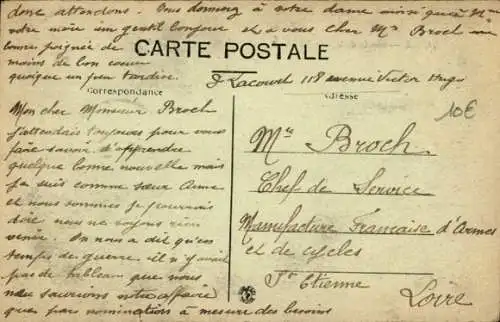 donc attendons. Vous donnez à votre dame ainsi qu'à Mme
votre mère un gentil bonjour et à vous cher Mr Broch une
bonne poignée de
mains de bon cœur
quoique un peu tardive.
CARTE POSTALE
J Lacourt 118 avenue Victor Hugo
Correspondance
Adresse
10€
Mon cher Monsieur Broch
J'attendais toujours pour vous
faire savoir d'apprendre
quelque bonne nouvelle mais
je suis comme sœur Anne
et nous sommes je pourrais
dire nous ne voyons rien
venir. On nous a dit qu'en
temps de guerre il n'y avait
pas de tableau que nous
nous saurions notre affaire
que par nomination à mesure des besoins
Mr Broch
Chef de Service
Manufacture Française d'Armes
et de cycles
St Etienne
Loire